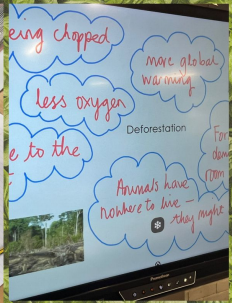 eing chopped
more global
warming
less oxygen
Deforestation
e to the
For
Animals have
nowhere to live –
they might
room